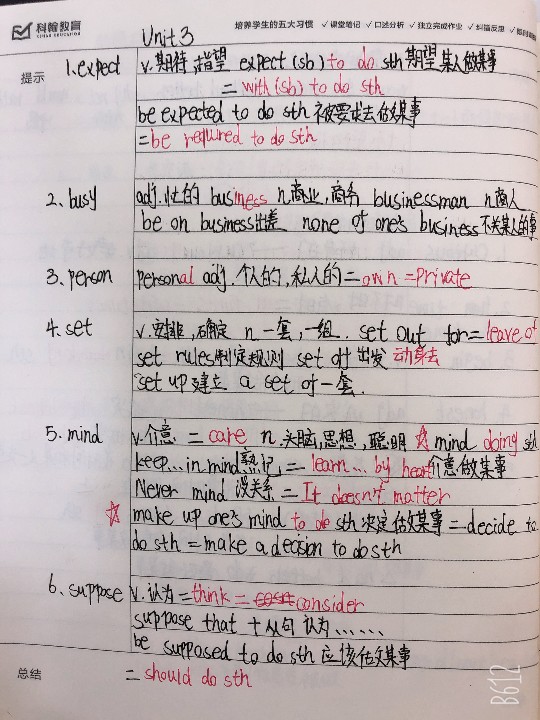 科翰教育
KEHAN EDUCATION
培养学生的五大习惯 ✓课堂笔记 ✓口述分析 ✓独立完成作业 ✓纠错反思
Unit 3
提示
1.expect v.期待,指望 expect (sb) to do sth 期望某人做某事
= with (sb) to do sth
be expected to do sth 被要求去做某事
=be required to do sth
2. busy adj.忙的 business n.商业,商务 businessman n.商人
be on business出差 none of one's business 不关某人的事
3. person personal adj. 个人的,私人的=own =Private
4. set v.安排,确定 n一套,一组. set out for= leave of
set rules制定规则 set off 出发 动身去
set up 建立 a set of 一套.
5. mind v.介意 = care n.头脑,思想,聪明 ☆ mind doing sth
keep...in mind 熟记,= learn... by heart 介意做某事
Never mind 没关系 = It doesn't matter
☆ make up one's mind to do sth 决定做某事 = decide to
do sth = make a decision to do sth
6. suppose v.认为 =think = consider
suppose that +从句 认为......
be supposed to do sth 应该做某事
总结 = should do sth
B612